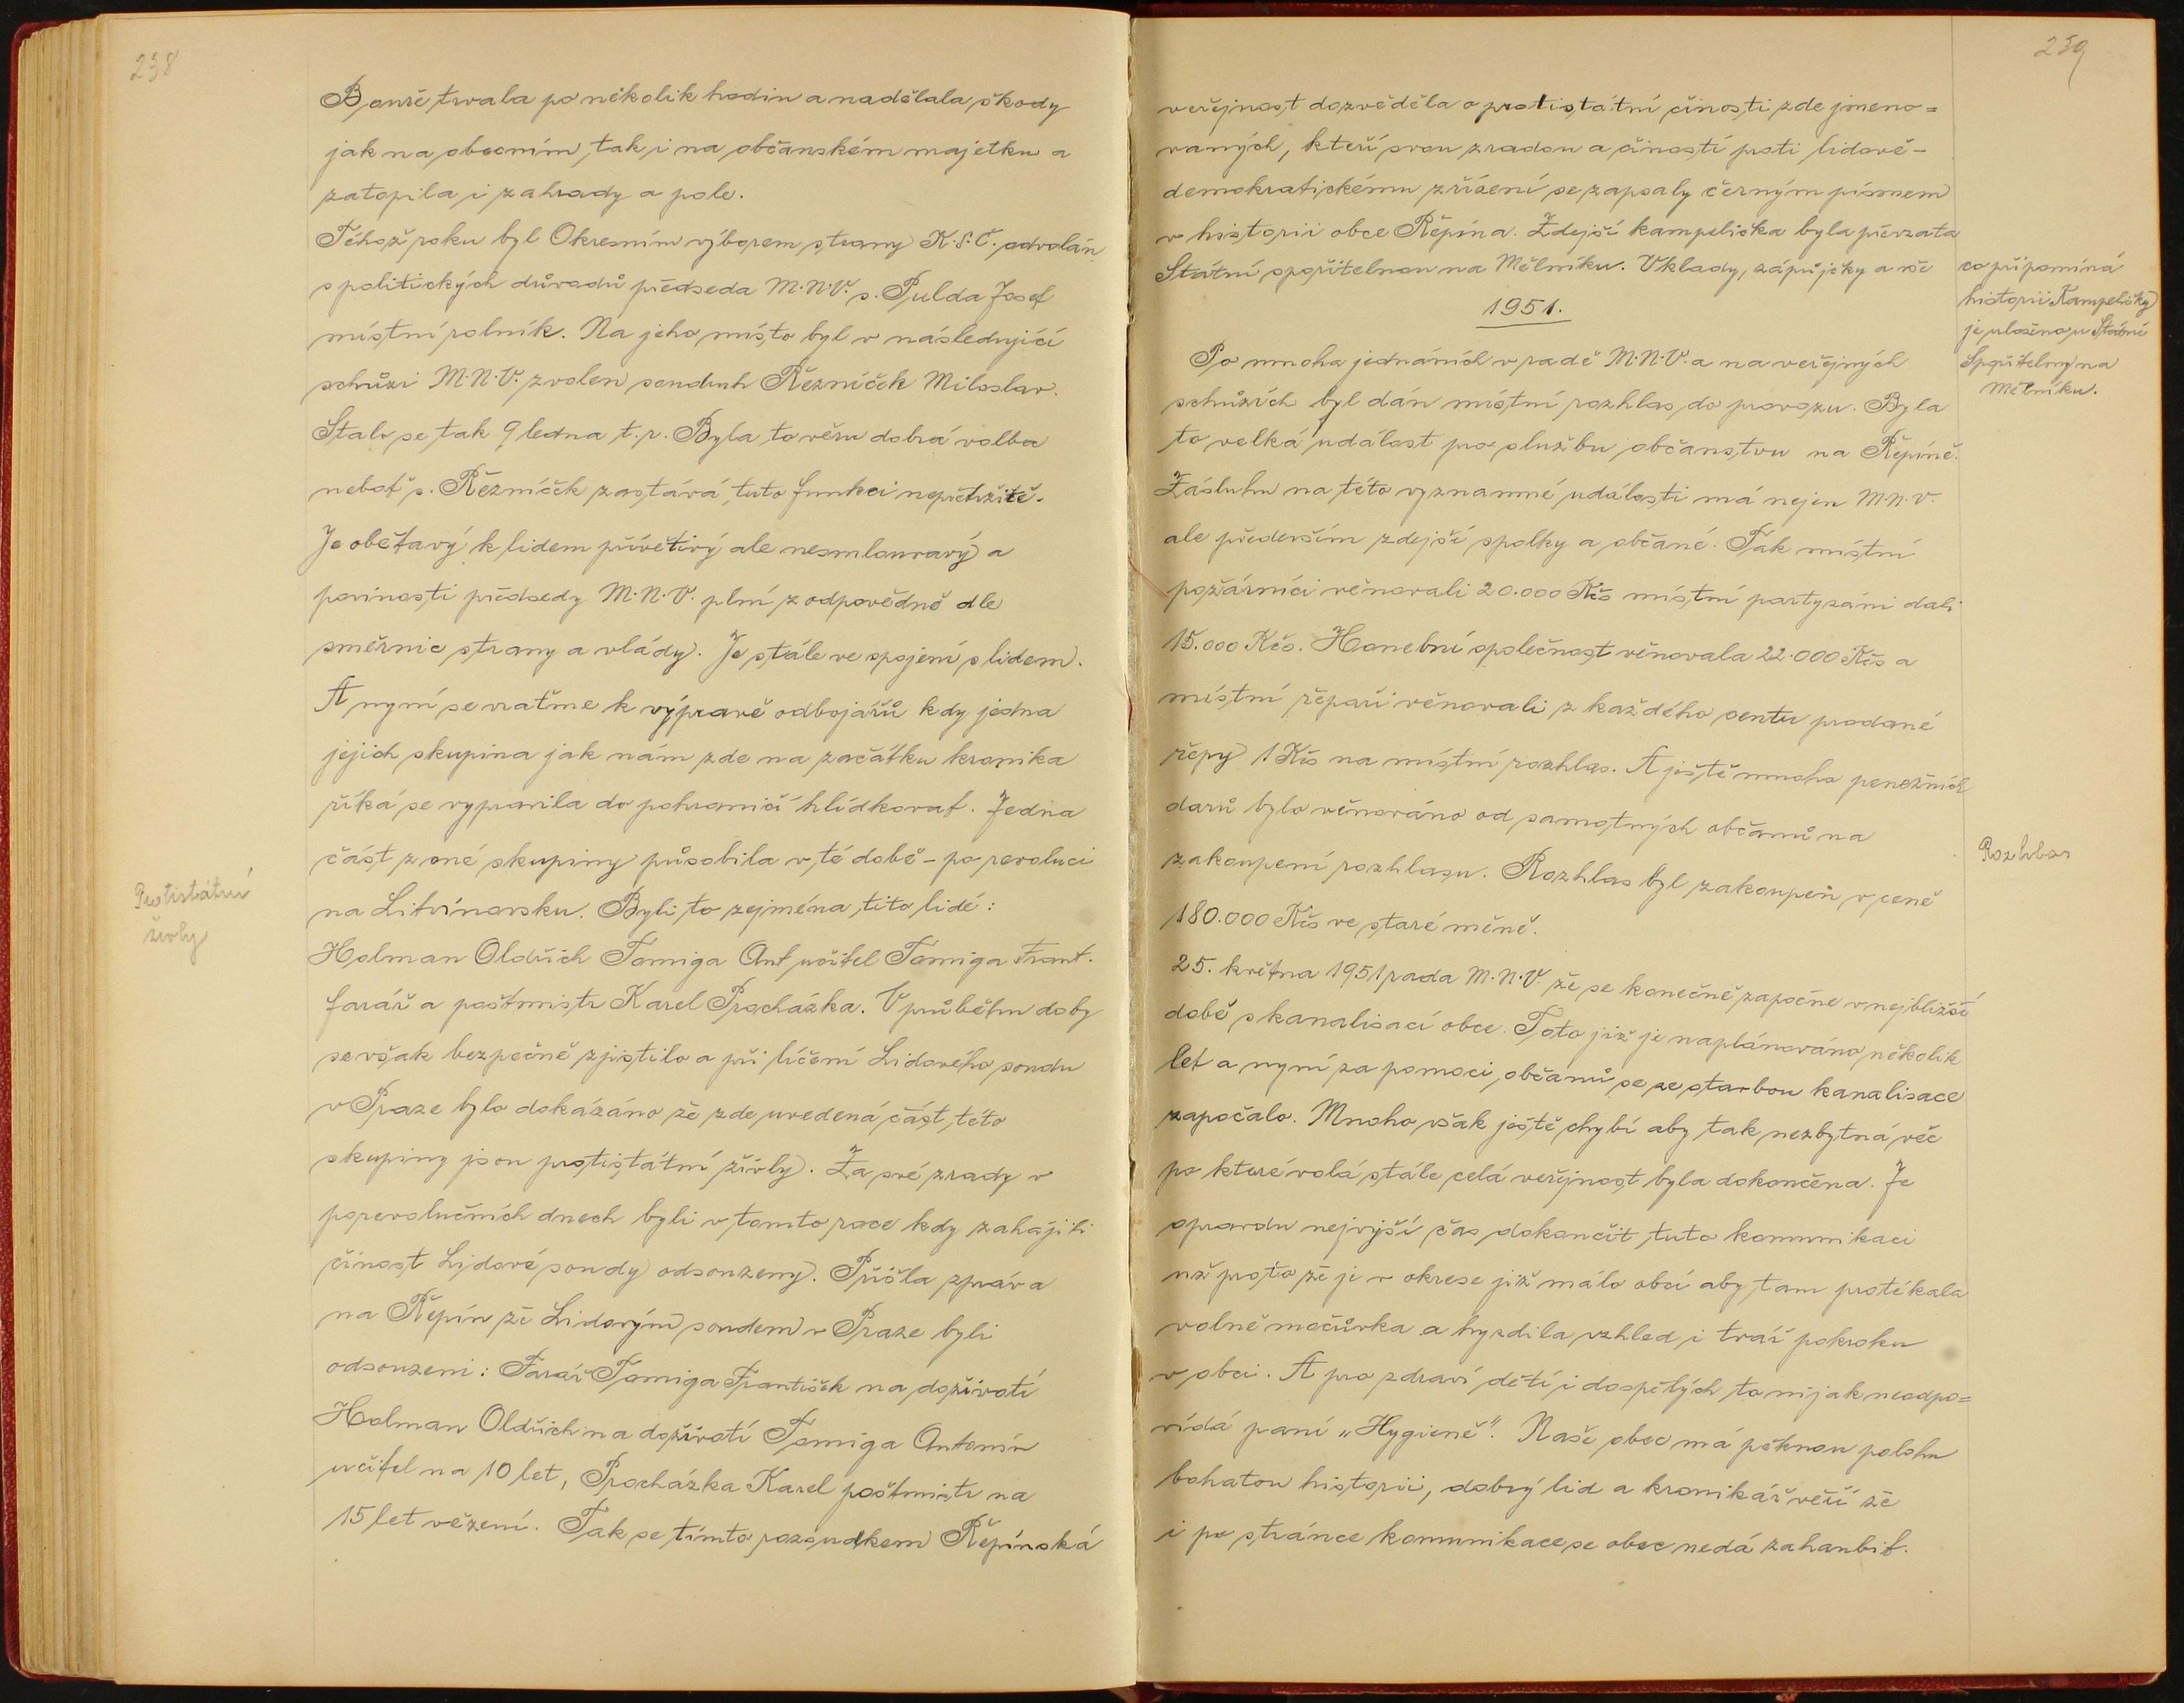 238
Bouře trvala po několik hodin a nadělala škody
jak na obecním, tak i na občanském majetku a
zatopila i zahrady a pole.
Téhož roku byl Okresním výborem strany K.S.Č. odvolán
s politických důvodů předseda M.N.V. s. Pulda Josef
místní rolník. Na jeho místo byl v následující
schůzi M.N.V. zvolen soudruh Řezníček Miloslav.
Stalo se tak 9 ledna t.r. Byla to věru dobrá volba
neboť s. Řezníček zastává tuto funkci nepřetržitě.
Je obětavý k lidem přívětivý ale nesmlouvavý a
povinosti předsedy M.N.V. plní zodpovědně dle
směrnic strany a vlády. Je stále ve spojení s lidem.
A nyní se vraťme k výpravě odbojářů kdy jedna
jejich skupina jak nám zde na začátku kronika
říká se vypravila do pohraničí hlídkovat. Jedna
část z oné skupiny působila v té době - po revoluci
Protistátní
živly
na Litvínovsku. Byli to zejména tito lidé:
Holman Oldřich Tomiga Ant učitel Tomiga Frant.
farář a poštmistr Karel Procházka. V průběhu doby
se však bezpečně zjistilo a při líčení Lidového soudu
v Praze bylo dokázáno že zde uvedená část této
skupiny jsou protistátní živly. Za své zrady v
porevolučních dnech byli v tomto roce kdy zahájili
činost Lidové soudy odsouzeny. Přišla zpráva
na Řepín že Lidovým soudem v Praze byli
odsouzeni: Farář Tomiga František na doživotí
Holman Oldřich na doživotí Tomiga Antonín
učitel na 10 let, Procházka Karel poštmistr na
15 let vězení. Tak se tímto rozsudkem Řepínská
239
veřejnost dozvěděla o protistátní činosti zde jmeno=
vaných, kteří svou zradou a čiností proti lidově-
demokratickému zřízení se zapsaly černým písmem
v historii obce Řepína. Zdejší kampelička byla převzata
Státní spořitelnou na Mělníku. Vklady, zápůjčky a vše
co připomíná
historii Kampeličky
je uloženo u Státní
Spořitelny na
Mělníku.
1951.
Po mnoha jednáních v radě M.N.V. a na veřejných
schůzích byl dán místní rozhlas do provozu. Byla
to velká událost pro službu občanstvu na Řepíně.
Zásluhu na této významné události má nejen M.N.V.
ale především zdejší spolky a občané. Tak místní
požárníci věnovali 20.000 Kčs místní partyzáni dali
15.000 Kčs. Honební společnost věnovala 22.000 Kčs a
místní řepaři věnovali z každého centu prodané
řepy 1 Kčs na místní rozhlas. A ještě mnoho peněžních
darů bylo věnováno od samotných občanů na
zakoupení rozhlasu. Rozhlas byl zakoupen v ceně
Rozhlas
180.000 Kčs ve staré měně.
25. května 1951 rada M.N.V. že se konečně započne v nejbližší
době s kanalisací obce. Toto již je naplánováno několik
let a nyní za pomoci občanů se se stavbou kanalisace
započalo. Mnoho však ještě chybí aby tak nezbytná věc
po které volá stále celá veřejnost byla dokončena. Je
opravdu nejvyšší čas dokončit tuto komunikaci
už proto že je v okrese již málo obcí aby tam protékala
volně močůvka a hyzdila vzhled i tvář pokroku
v obci. A pro zdraví dětí i dospělých to nijak neodpo=
vídá paní „Hygieně". Naše obec má pěknou polohu
bohatou historii, dobrý lid a kronikář věří že
i po stránce komunikace se obec nedá zahanbit.